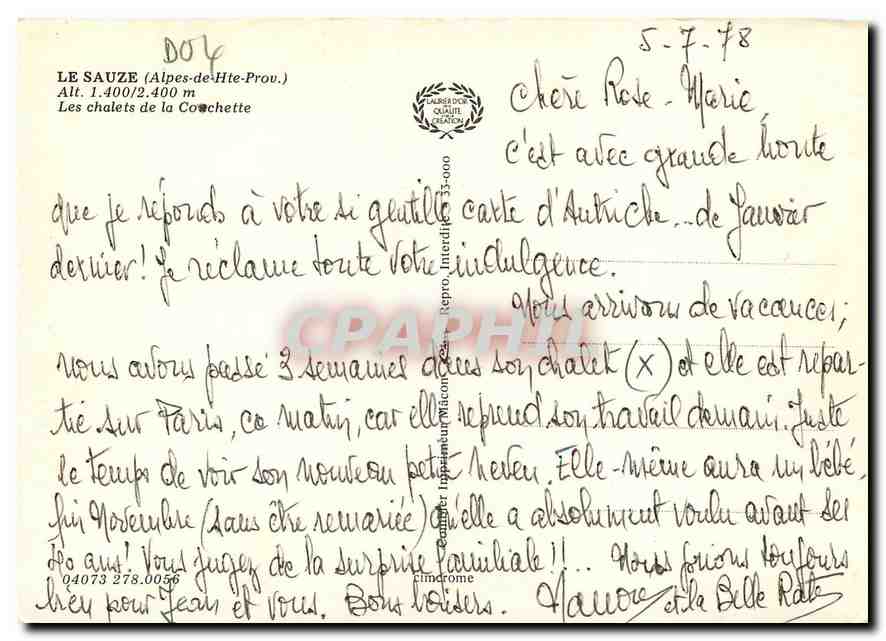 D04
5-7-78
LE SAUZE (Alpes-de-Hte-Prov.)
Alt. 1.400/2.400 m
Les chalets de la Conchette
LAURIER D'OR
DE LA
QUALITÉ
CRÉATION
Chère Rose-Marie,
c'est avec grande honte
que je réponds à votre si gentille carte d'Autriche... de Janvier
dernier! Je réclame toute votre indulgence.
Nous arrivons de vacances;
nous avons passé 3 semaines dans son chalet (X) et elle est repar-
tie sur Paris, ce matin, car elle reprend son travail demain. Juste
le temps de voir son nouveau petit neveu. Elle-même aura un bébé,
fin Novembre (sans être remariée) qu'elle a absolument voulu avant ses
40 ans! Vous jugez de la surprise familiale!!... Nous prions toujours
bien pour Jean et vous. Bons baisers. et la Belle Rate
Combier Imprimeur Mâcon Repro. Interdite 33-000
CPAPHIL
04073 278.0056
cimcrome